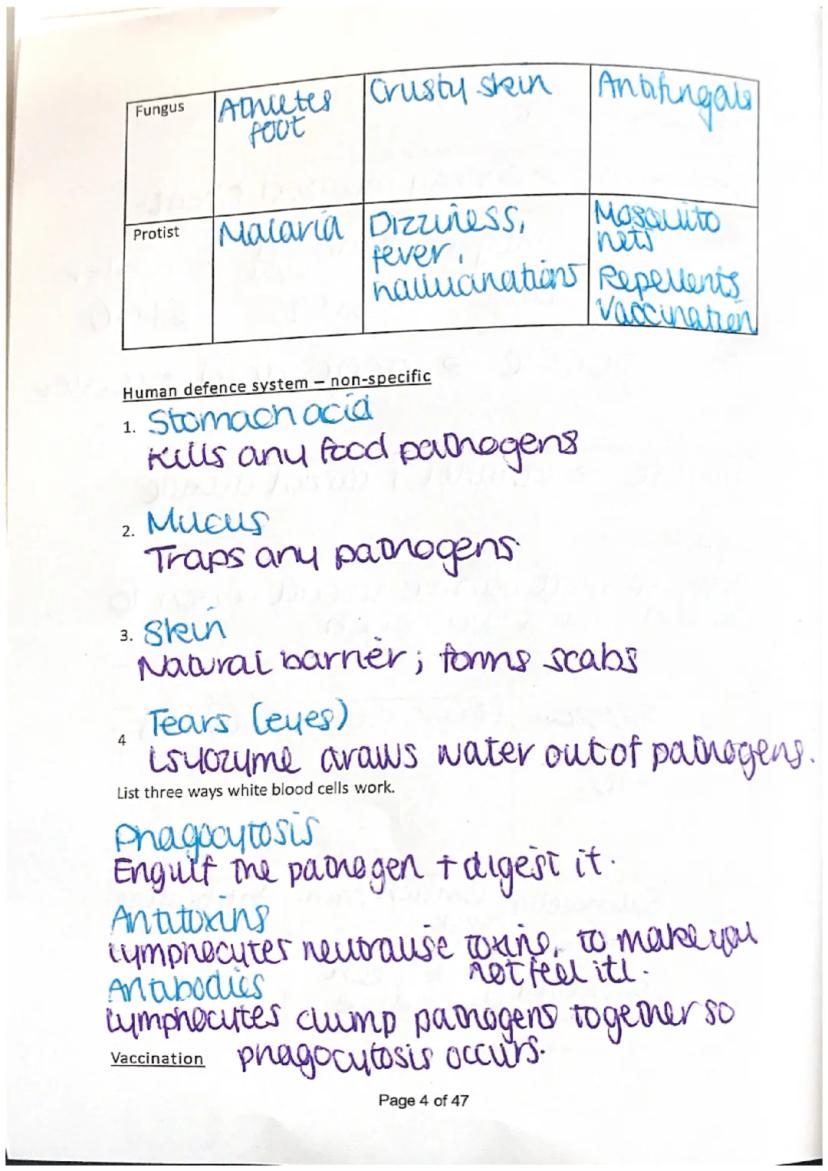 Fungus
Athletes
foot
Crusty skin
Antifungals
Protist
Malaria
Dizziness,
fever,
hallucinations
Mosquito
nets
Repellents
Vaccination
Human defence system – non-specific
1. Stomach acid
Kills any food pathogens
2. Mucus
Traps any pathogens.
3. Skin
Natural barrier; forms scabs
4 Tears (eyes)
Lsyozyme draws water out of pathogens.
List three ways white blood cells work.
Phagocytosis
Engulf the pathogen + digest it.
Antitoxins
Lymphocytes neutralise toxins, to make you
not feel ill.
Antibodies
Lymphocytes clump pathogens together so
phagocytosis occurs.
Vaccination
Page 4 of 47